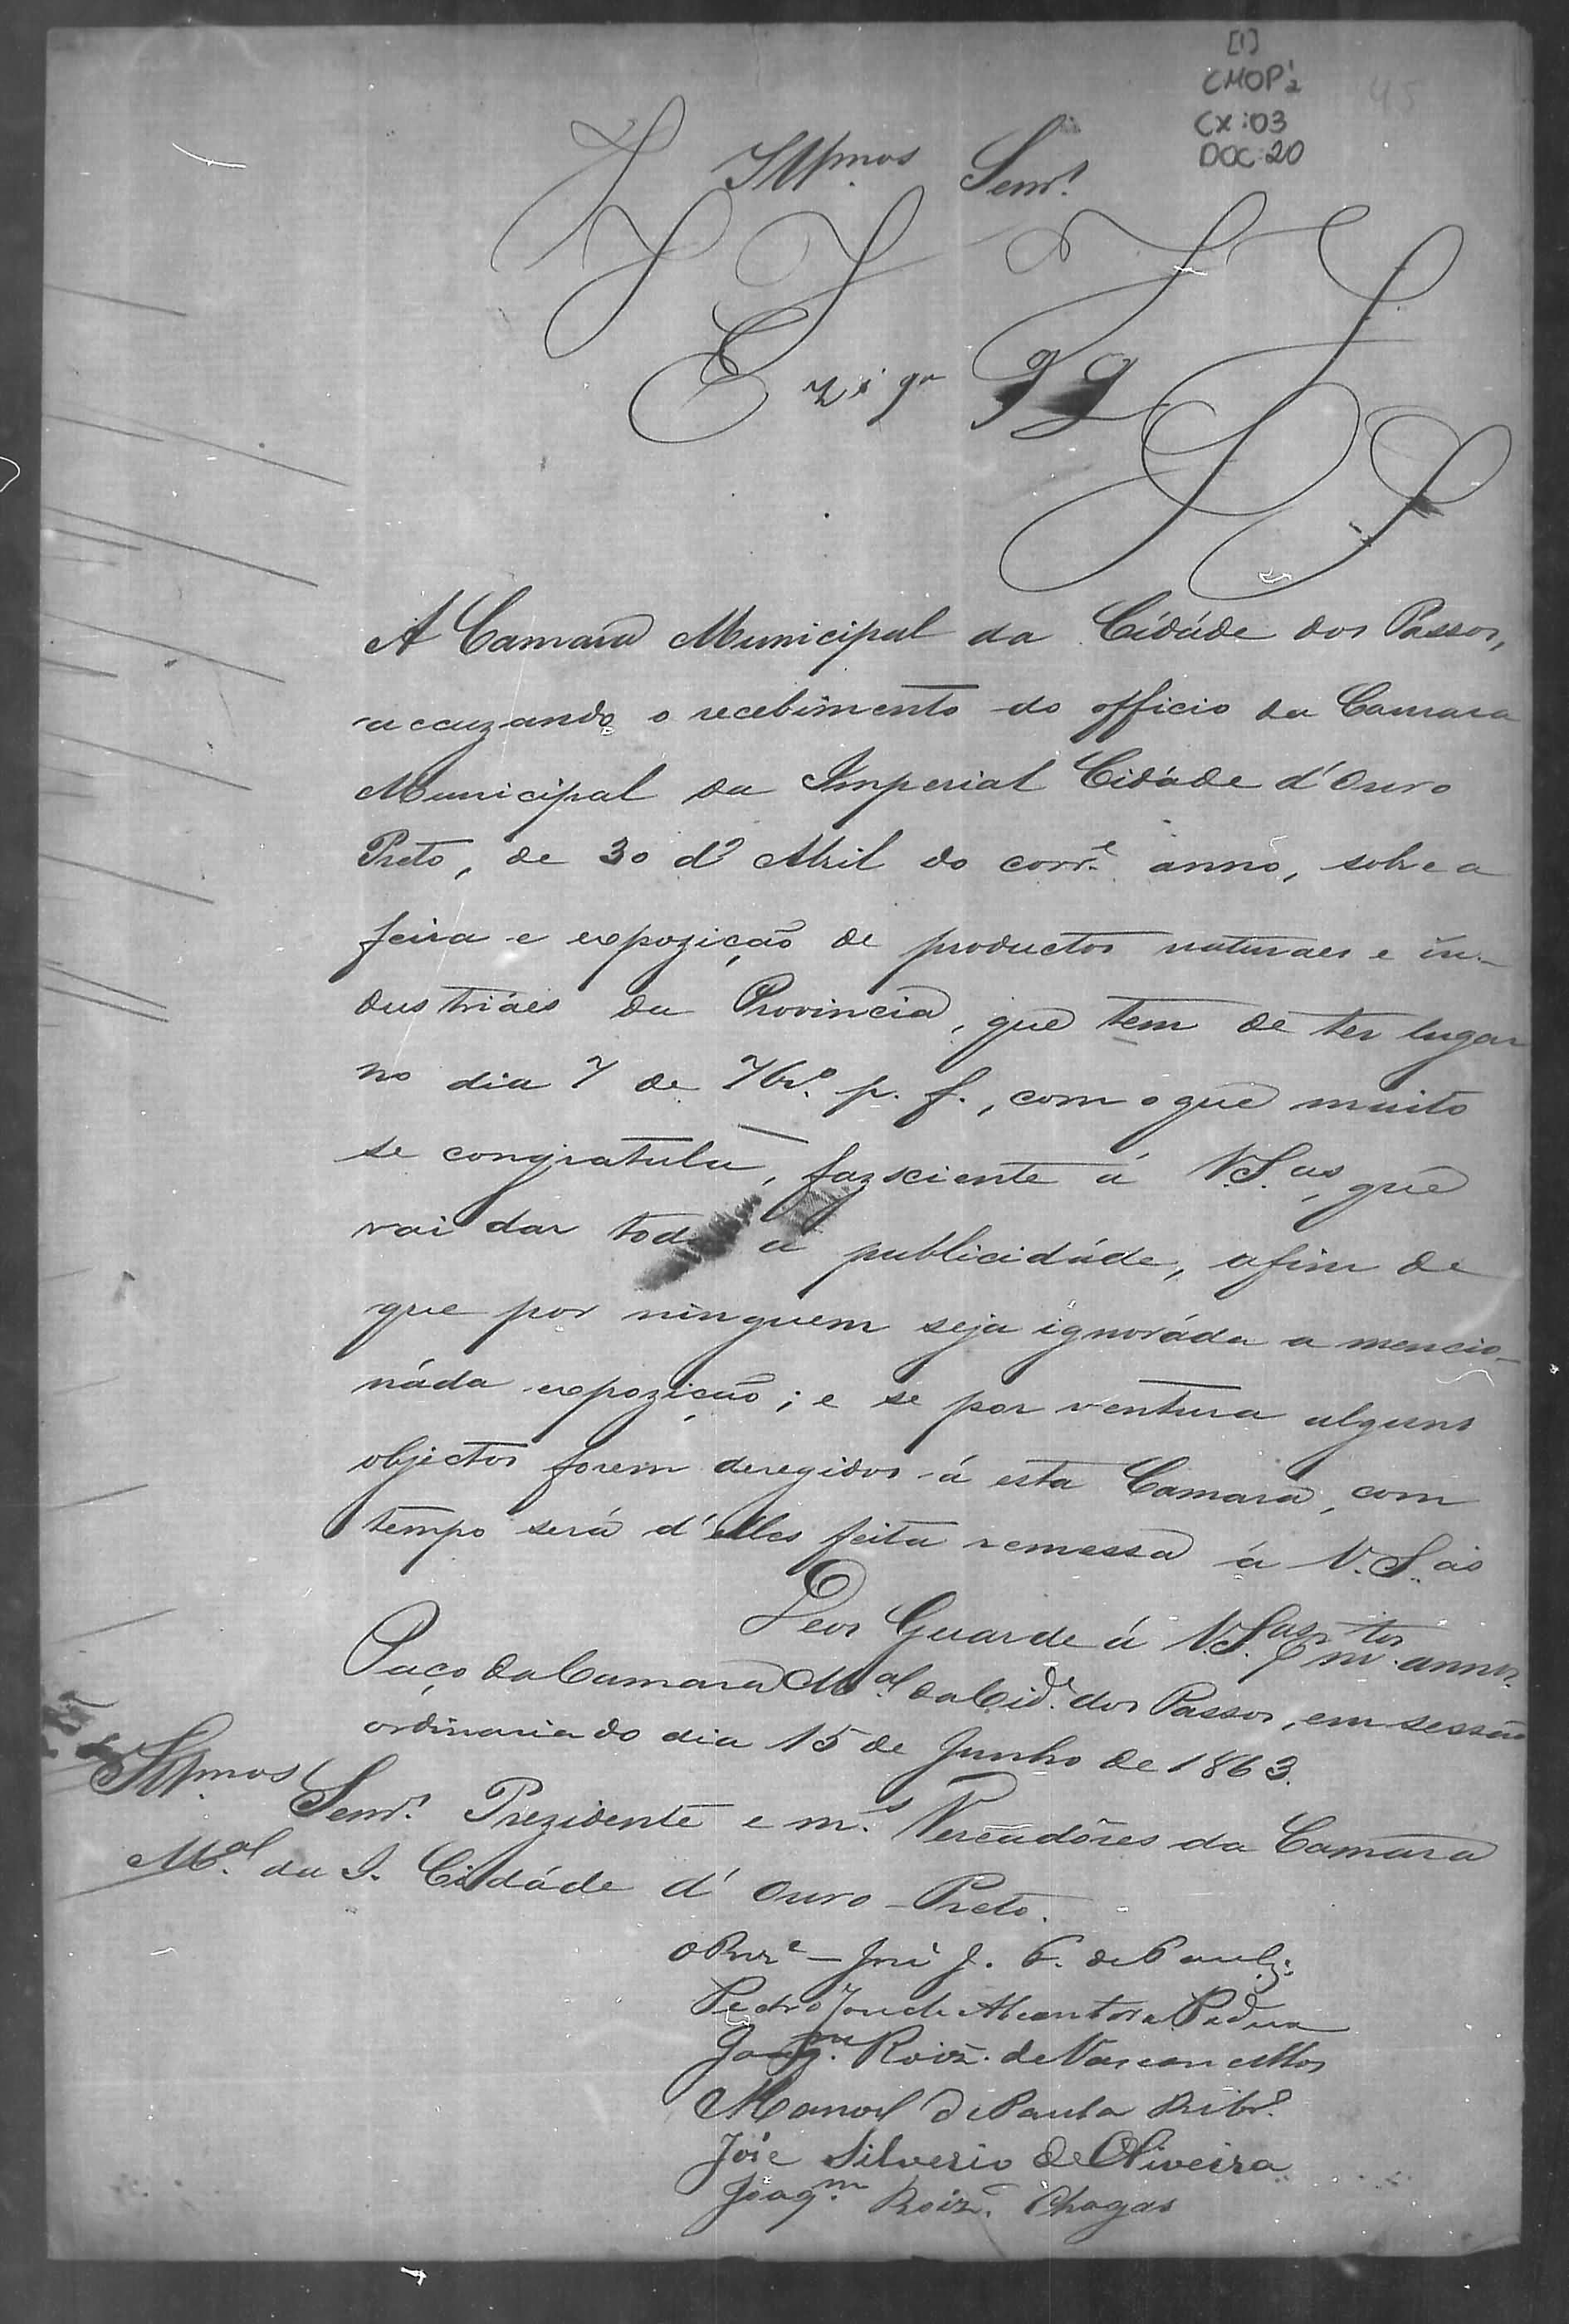 [1]
CMOP 2
CX:03
DOC:20
Illmos Senr.
A Camara Municipal da Cidáde dos Passos,
accuzando o recebimento do officio da Camara
Municipal da Imperial Cidáde d'Ouro
Preto, de 30 d' Abril do corr.e anno, sobre a
feira e expozição de productos naturaes e in-
dustriáes da Provincia, que tem de ter lugar
no dia 7 de 7br.o p. f., com o que muito
se congratula, faz sciente á V.S.as, que
vai dar toda a publicidáde, afim de
que por ninguem seja ignoráda a mencio-
náda expozição; e se por ventura alguns
objectos forem deregidos á esta Camara, com
tempo será d'elles feita remessa á V.S.as
Deos Guarde á V.S.as m.tos annos.
Paço da Camara M.al da Cid.e dos Passos, em sessão
ordinaria do dia 15 de Junho de 1863.
Illmos Senr. Prezidente e m.s Vereadôres da Camara
M.al da I. Cidáde d' Ouro-Preto.
O Prez.e – José J. F. de Paula
Pedro José de Alcantara Padua
Joaq.m Roiz. de Vasconcellos
Manoel de Paula Ribr.o
José Silverio de Oliveira
Joaq.m Roiz. Chagas